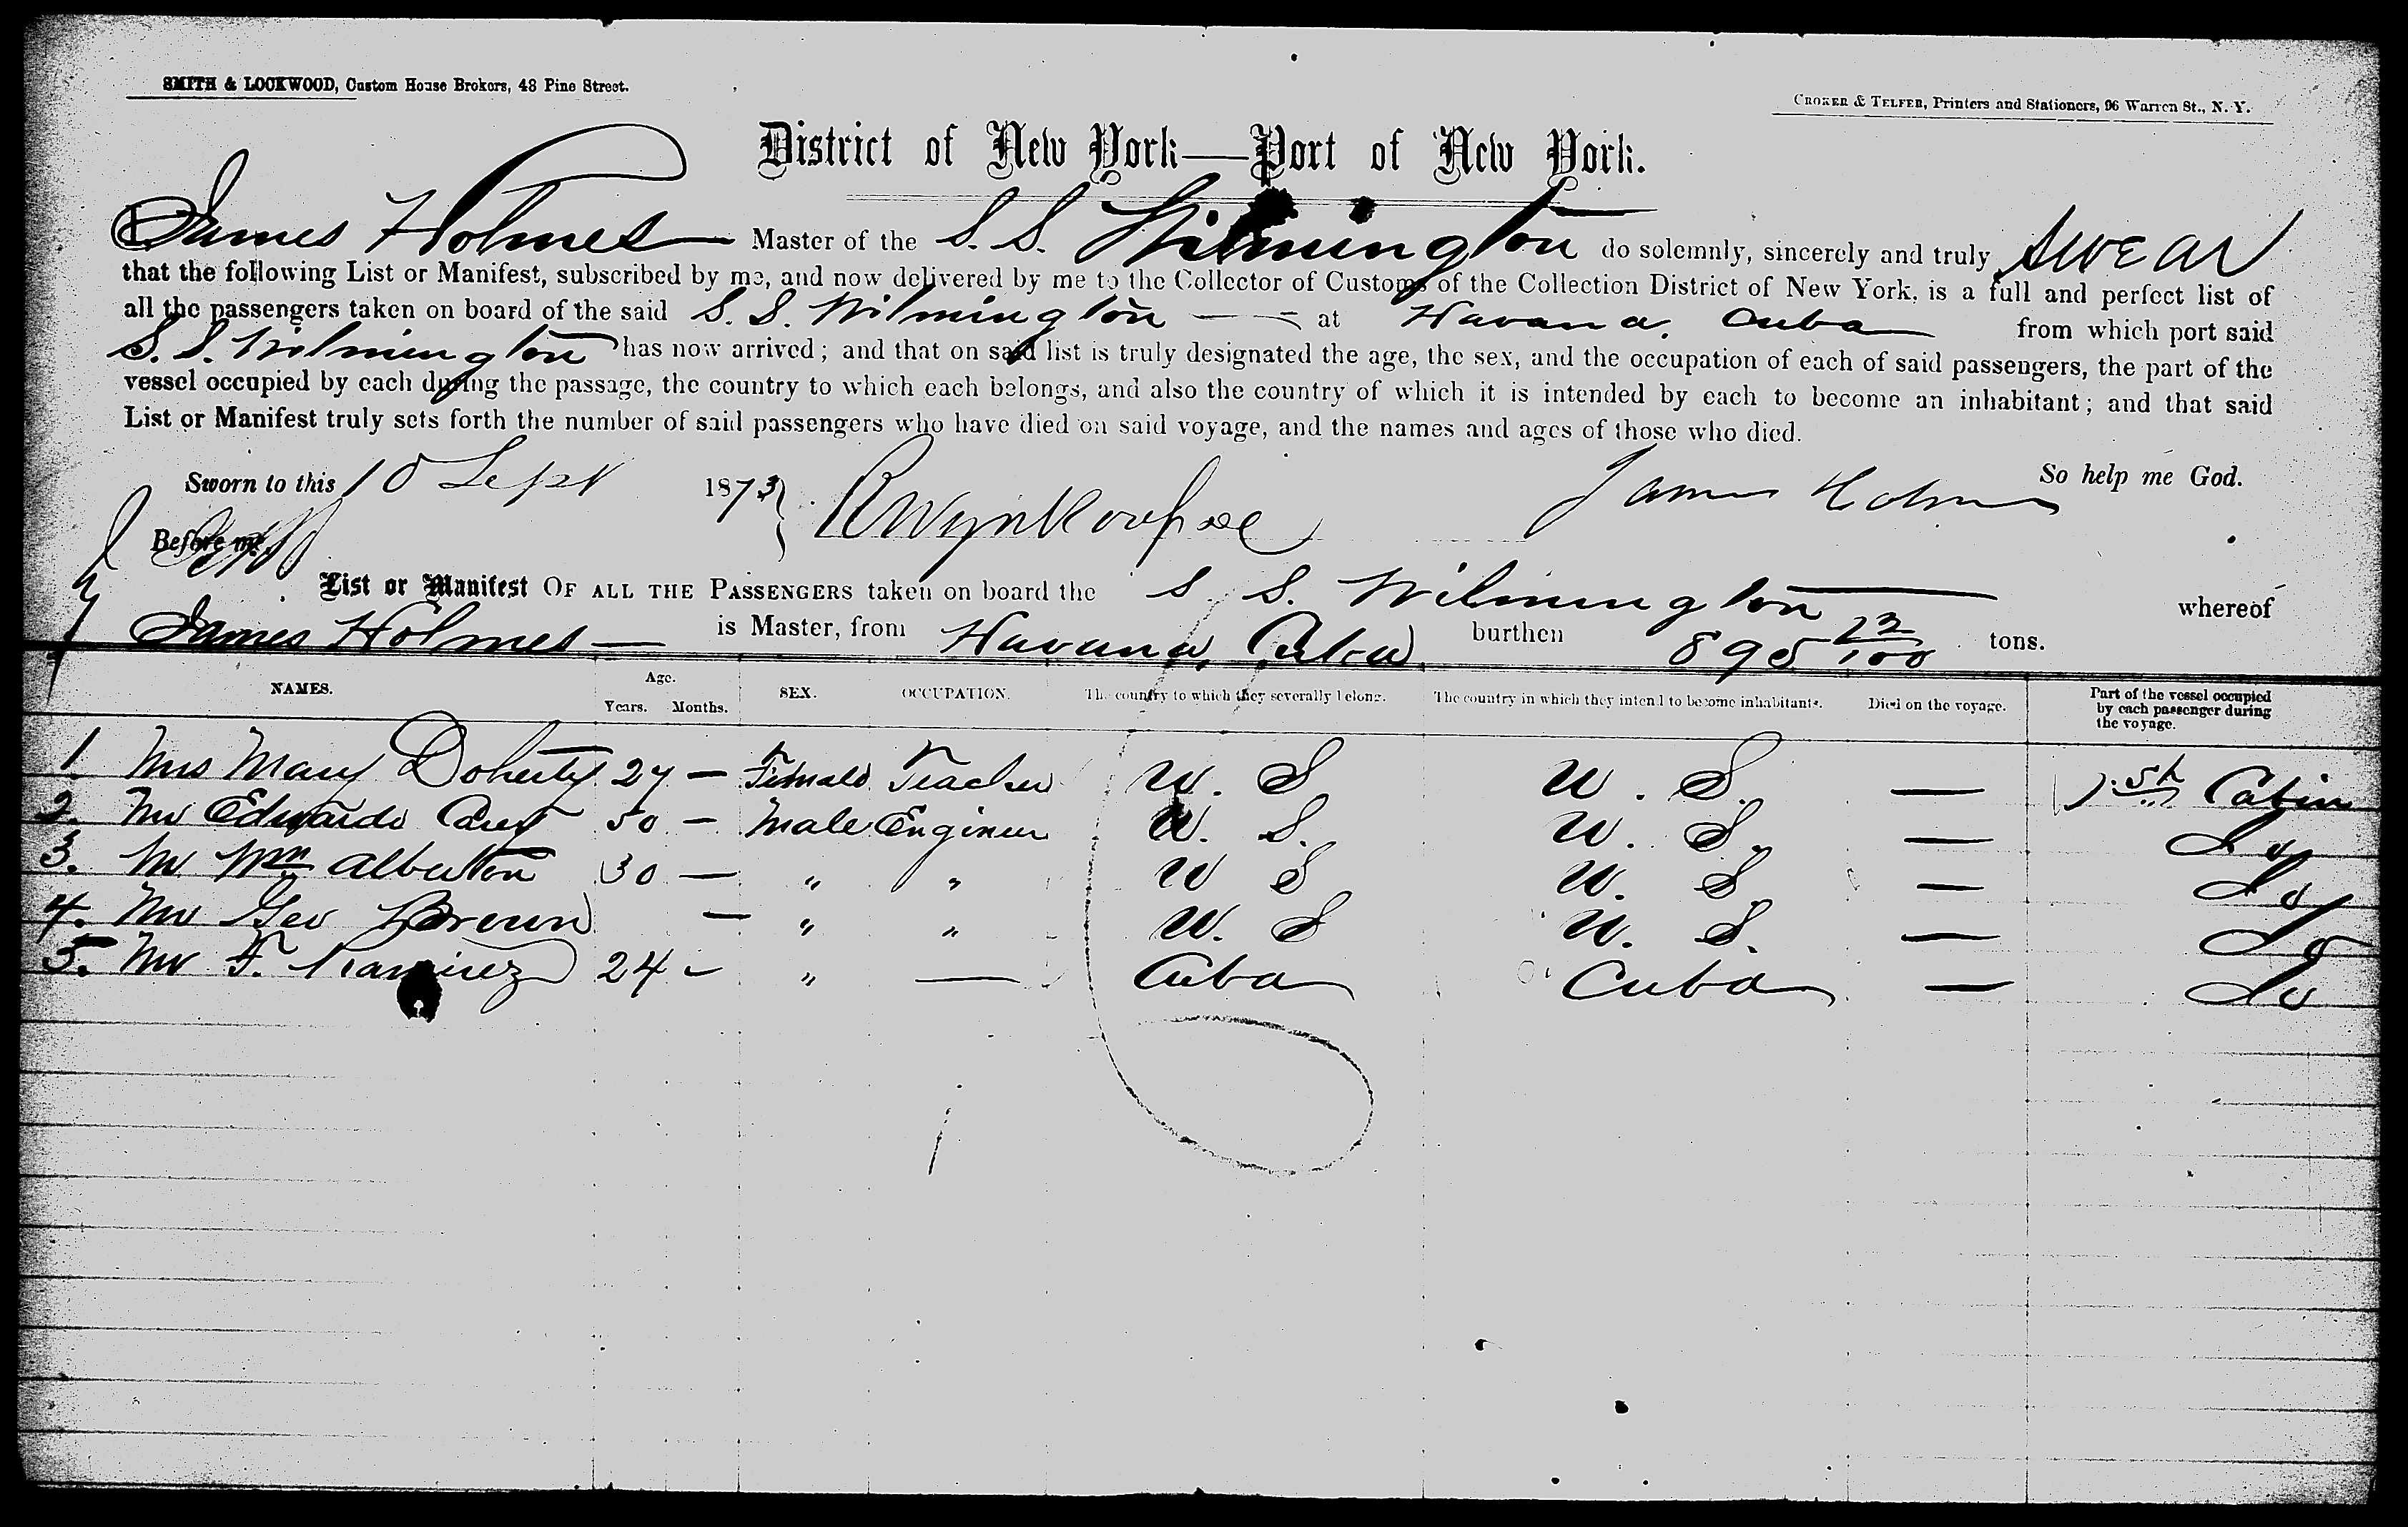 SMITH & LOCKWOOD, Custom House Brokers, 43 Pine Street.
CROKER & TELFER, Printers and Stationers, 96 Warren St., N. Y.
District of New York—Port of New York.
I James Holmes Master of the S. S. Wilmington do solemnly, sincerely and truly swear
that the following List or Manifest, subscribed by me, and now delivered by me to the Collector of Customs of the Collection District of New York, is a full and perfect list of
all the passengers taken on board of the said S. S. Wilmington — at Havana, Cuba from which port said
S. S. Wilmington has now arrived; and that on said list is truly designated the age, the sex, and the occupation of each of said passengers, the part of the
vessel occupied by each during the passage, the country to which each belongs, and also the country of which it is intended by each to become an inhabitant; and that said
List or Manifest truly sets forth the number of said passengers who have died on said voyage, and the names and ages of those who died.
Sworn to this 10 Sept 1873 James Holmes So help me God.
Before me,
List or Manifest OF ALL THE PASSENGERS taken on board the S. S. Wilmington whereof
James Holmes — is Master, from Havana, Cuba burthen 895 23/100 tons.
NAMES. Age. Years. Months. SEX. OCCUPATION. The country to which they severally belong. The country in which they intend to become inhabitants. Died on the voyage. Part of the vessel occupied by each passenger during the voyage.
1. Mrs Mary Doherty 27 — Female Teacher U. S U. S. — Cabin
2. Mr 50 — Male Engineer U. S. U. S. — Do
3. Mr Wm Alberton 30 — " " U S U. S — Do
4. Mr Geo Brown — " " U. S U. S. — Do
5. Mr F. Ramirez 24 - " — Cuba Cuba — Do